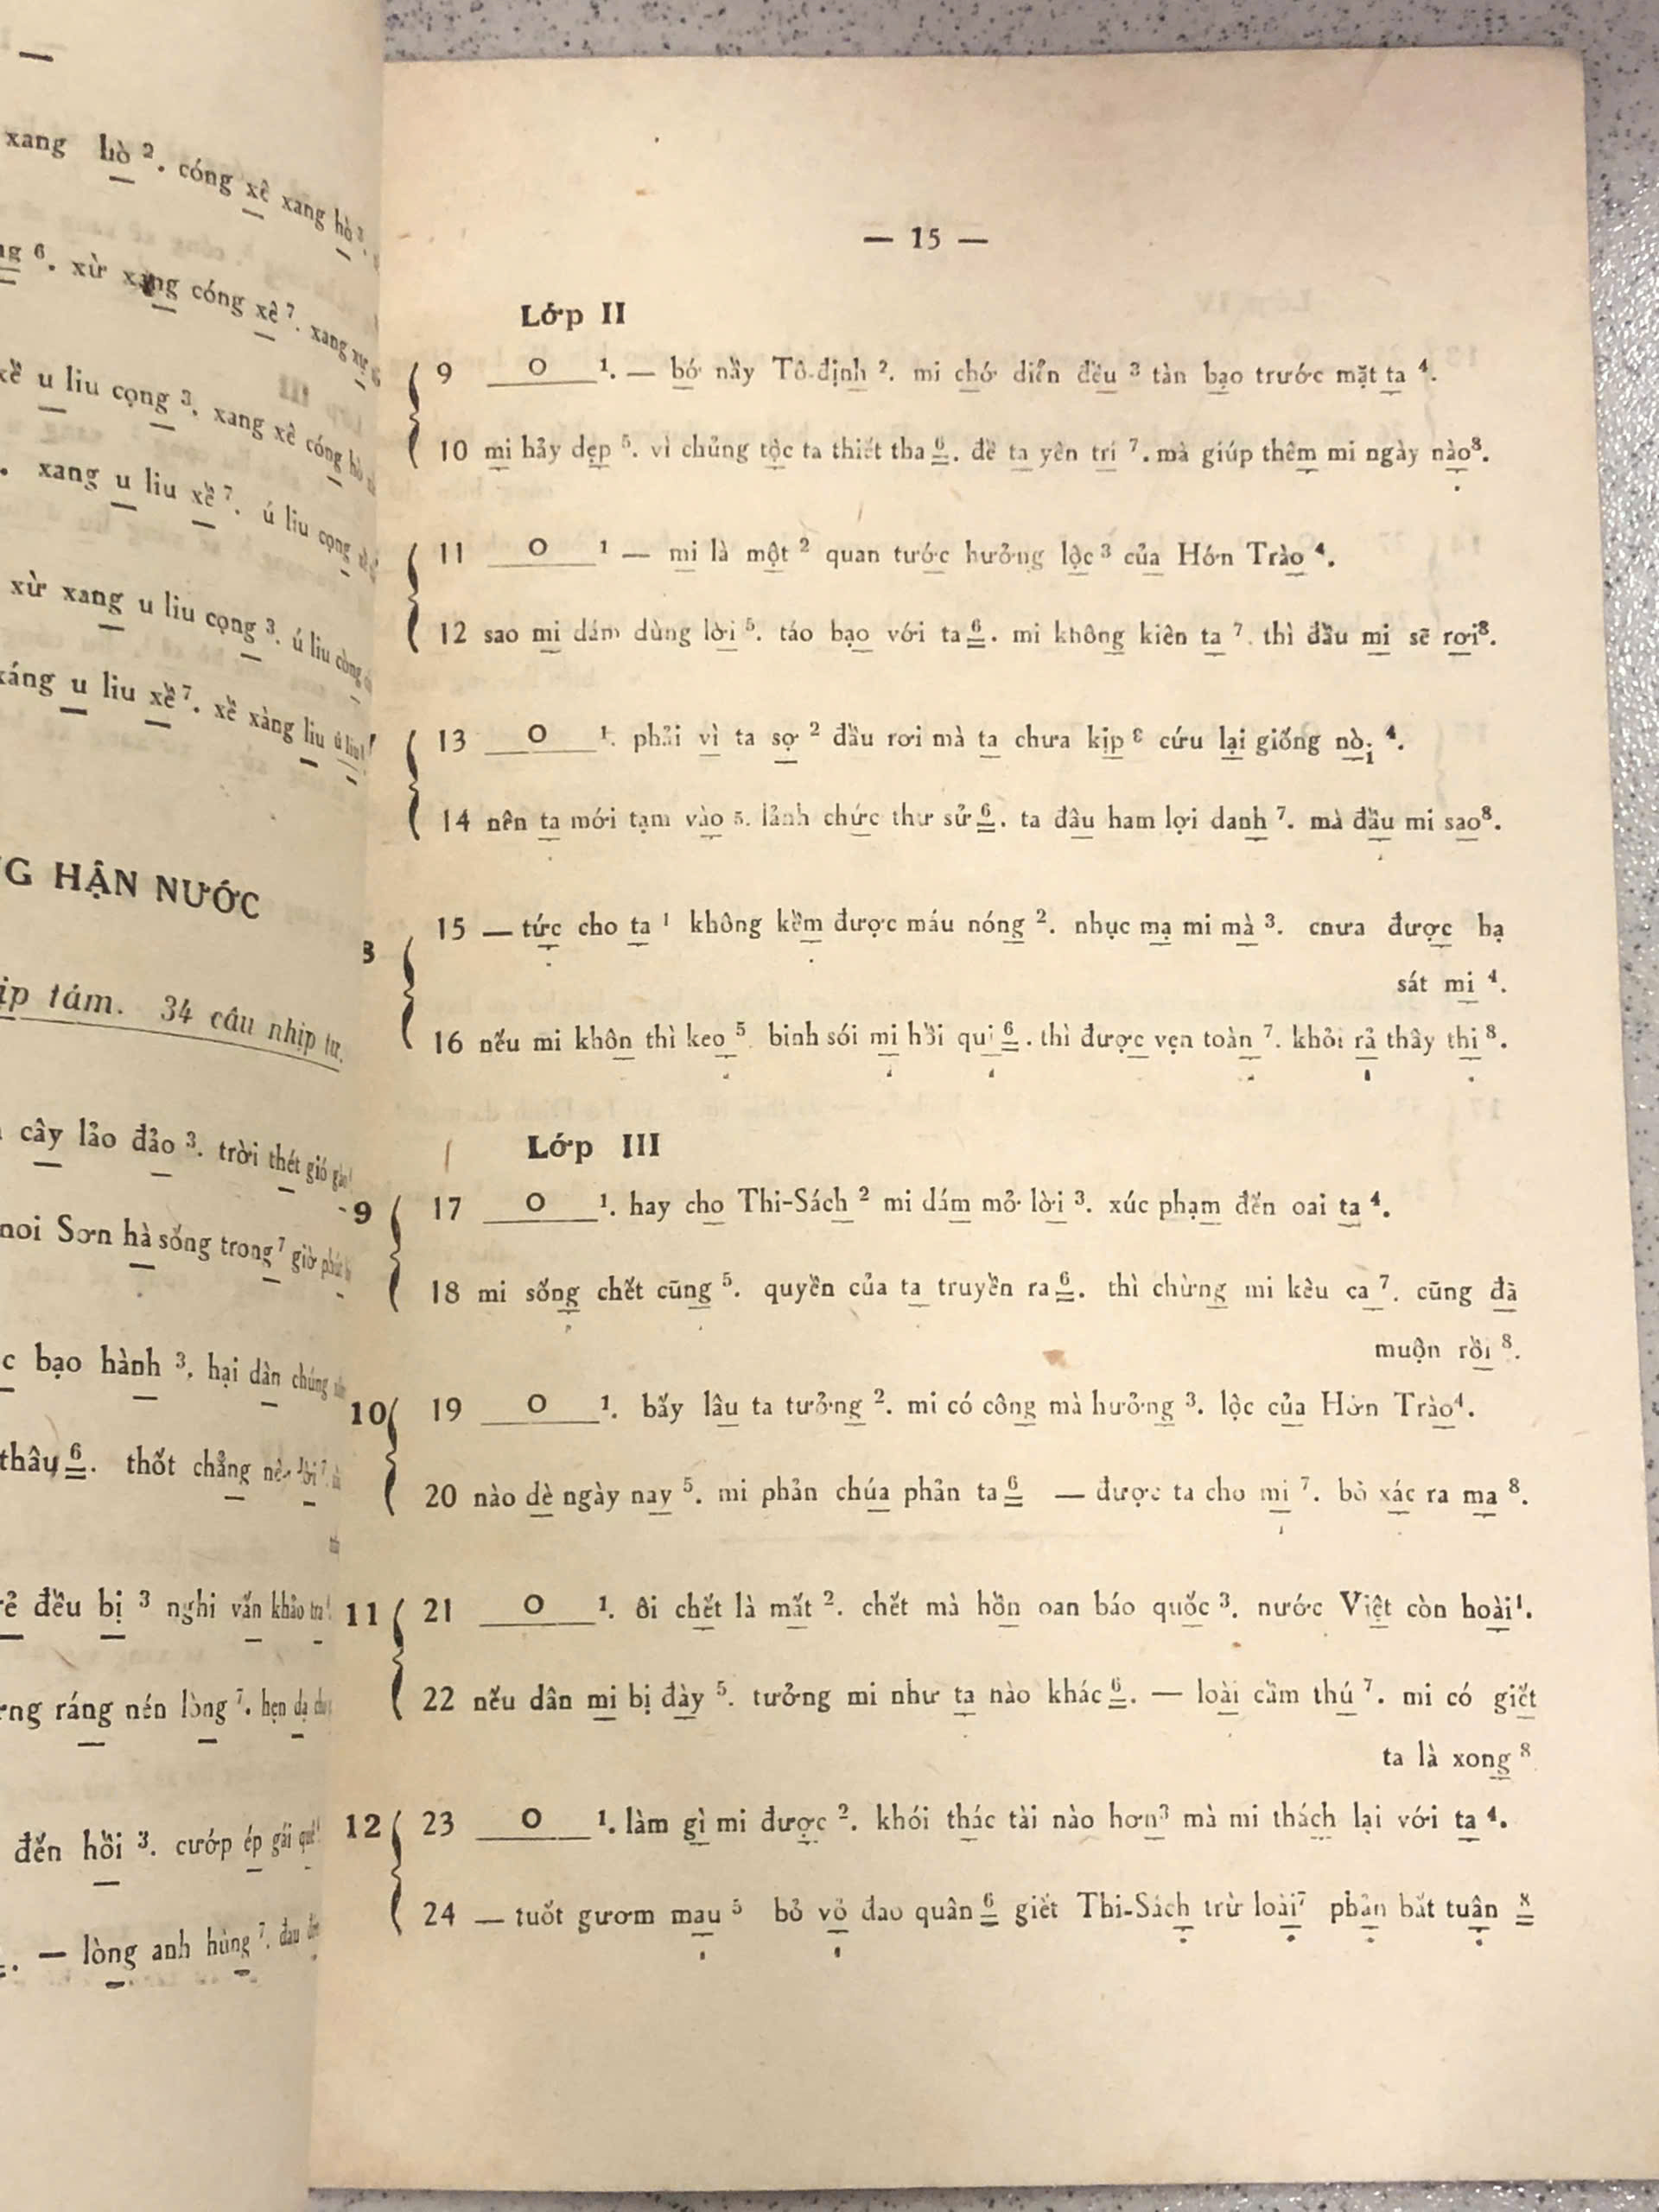 —
xang hò ². cóng xê xang hò ³.
⁶. xừ xang cóng xê ⁷. xang
u liu cọng ³. xang xê cóng hò
. xang u liu xề ⁷. ú liu cọng
xừ xang u liu cọng ³. ú liu còng
xáng u liu xề ⁷. xề xàng liu ú liu
HẬN NƯỚC
tám. 34 câu nhịp tư.
cây lảo đảo ³. trời thét gió
Sơn hà sống trong ⁷ giờ
bạo hành ³, hại dàn chúng
thâu ⁶. thốt chẳng
đều bị ³ nghi vấn khảo tra
ráng nén lòng ⁷. hẹn dạ
đến hồi ³. cướp ép gái
. — lòng anh hùng ⁷. đau
— 15 —
Lớp II
9 O ¹. — bớ nầy Tô-định ². mi chớ diễn đều ³ tàn bạo trước mặt ta ⁴.
10 mi hảy dẹp ⁵. vì chủng tộc ta thiết tha ⁶. đề ta yên trí ⁷. mà giúp thêm mi ngày nào⁸.
11 O ¹ — mi là một ² quan tước hưởng lộc ³ của Hớn Trào ⁴.
12 sao mi dám dùng lời ⁵. táo bạo với ta ⁶. mi không kiên ta ⁷. thì đầu mi sẽ rơi⁸.
13 O ¹. phải vì ta sợ ² đầu rơi mà ta chưa kịp ³ cứu lại giống nòi ⁴.
14 nên ta mới tạm vào ⁵. lảnh chức thư sử ⁶. ta đâu ham lợi danh ⁷. mà đầu mi sao⁸.
8 15 — tức cho ta ¹ không kềm được máu nóng ². nhục mạ mi mà ³. cnưa được hạ
sát mi ⁴.
16 nếu mi khôn thì keo ⁵. binh sói mi hồi qui ⁶. thì được vẹn toàn ⁷. khỏi rả thây thi ⁸.
Lớp III
9 17 O ¹. hay cho Thi-Sách ² mi dám mở lời ³. xúc phạm đến oai ta ⁴.
18 mi sống chết cũng ⁵. quyền của ta truyền ra ⁶. thì chừng mi kêu ca ⁷. cũng đã
muộn rồi ⁸.
10 19 O ¹. bấy lâu ta tưởng ². mi có công mà hưởng ³. lộc của Hớn Trào⁴.
20 nào dè ngày nay ⁵. mi phản chúa phản ta ⁶ — được ta cho mi ⁷. bỏ xác ra ma ⁸.
11 21 O ¹. ôi chết là mất ². chết mà hồn oan báo quốc ³. nước Việt còn hoài¹.
22 nếu dân mi bị đày ⁵. tưởng mi như ta nào khác ⁶. — loài cầm thú ⁷. mi có giết
ta là xong ⁸
12 23 O ¹. làm gì mi được ². khói thác tài nào hơn³ mà mi thách lại với ta ⁴.
24 — tuốt gươm mau ⁵ bỏ vỏ đao quân ⁶ giết Thi-Sách trừ loài⁷ phản bất tuân ⁸